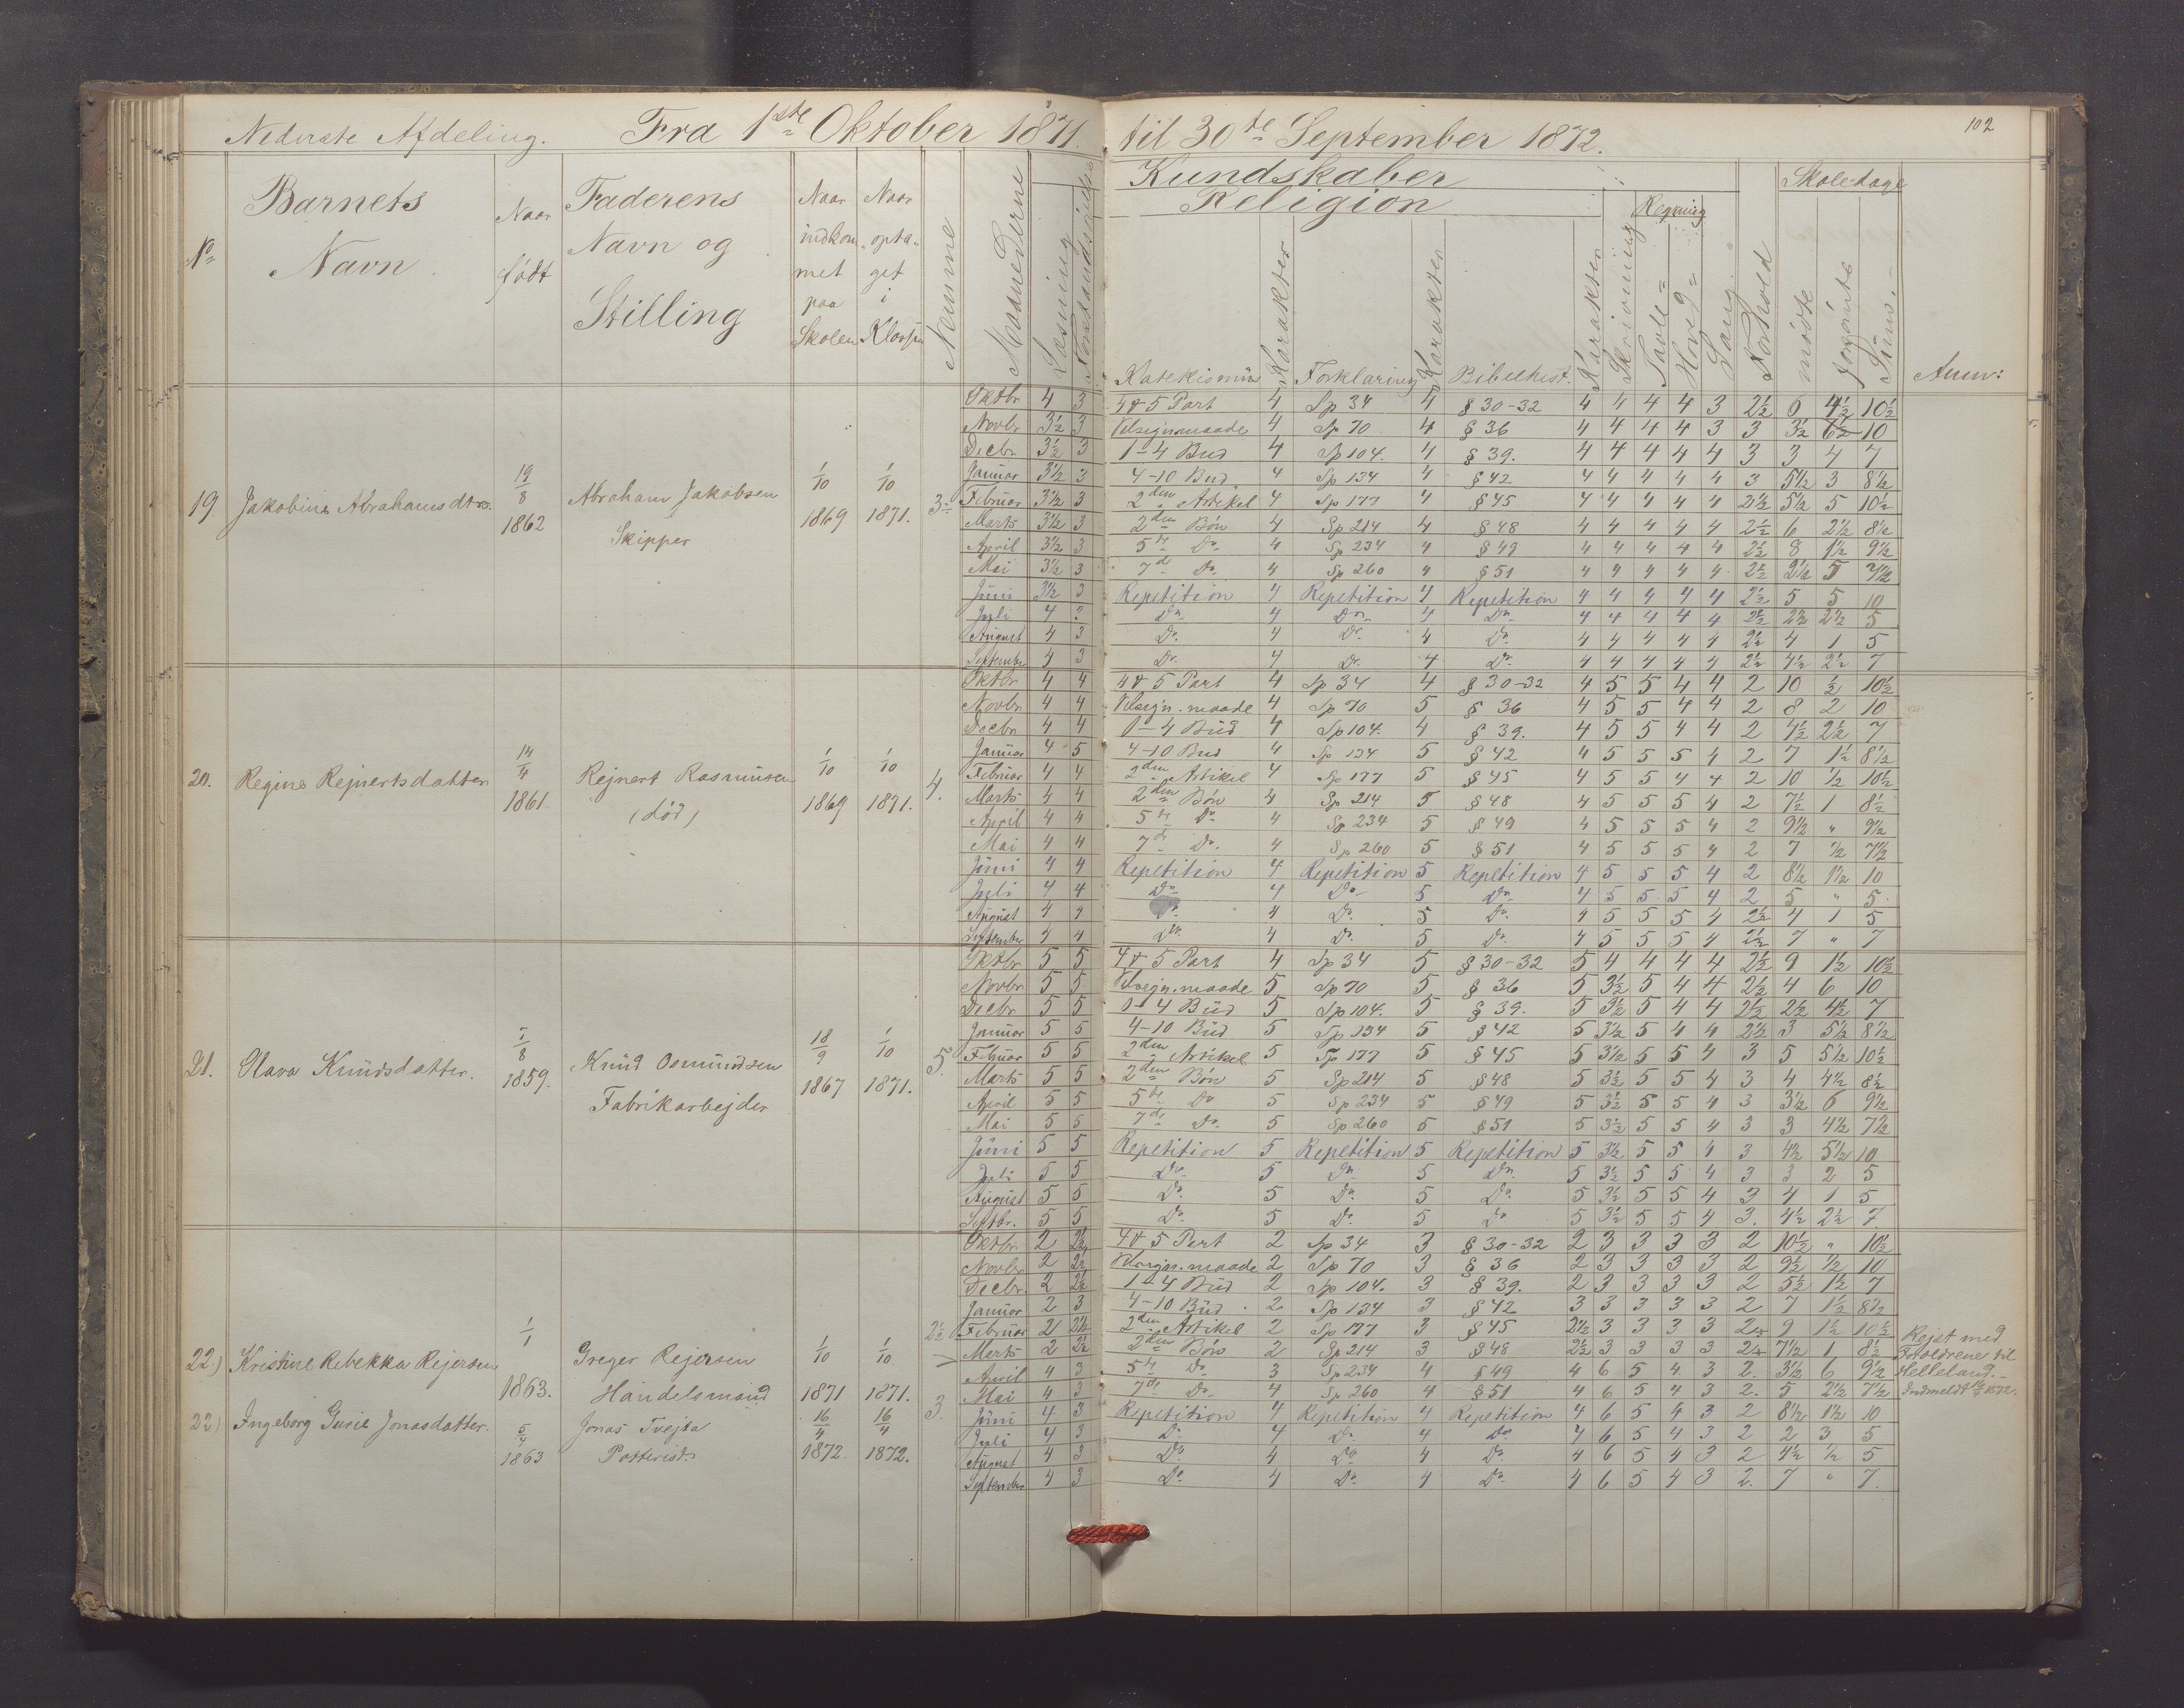 102
Nederste Afdeling. Fra 1ste Oktober 1871. til 30te September 1872.
No Barnets Navn Naar født Faderens Navn og Stilling Naar indkommet paa Skolen Naar optaget i Klassen Nemme Læsning
Kundskaber
Religion Regning Skoledage
Katekismus Karakter Forklaring Karakter Bibelhist. Karakter Skrivning Tavle= Hoved= Sang Forhold mødte forsømte Sum. Anm:
19 Jakobine Abrahamsdtr. 19/8 1862 Abraham Jakobsen Skipper 1/10 1869 1/10 1871. 3
Oktbr 4 3 4 & 5 Part 4 Sp 34 4 § 30-32 4 4 4 4 3 2½ 6 4½ 10½
Novbr 3½ 3 Velsign.maade 4 Sp 70 4 § 36 4 4 4 4 3 3 3½ 6½ 10
Decbr 3½ 3 1-4 Bud 4 Sp 104. 4 § 39. 4 4 4 4 4 3 3 4 7
Januar 3½ 3 4-10 Bud 4 Sp 134 4 § 42 4 4 4 4 4 3 5½ 3 8½
Februar 3½ 3 2den Artikel 4 Sp 177 4 § 45 4 4 4 4 4 2½ 5½ 5 10½
Marts 3½ 3 2den Bøn 4 Sp 214 4 § 48 4 4 4 4 4 2½ 6 2½ 8½
April 3½ 3 5te Do. 4 Sp 234 4 § 49 4 4 4 4 4 2½ 8 1½ 9½
Mai 3½ 3 7de Do. 4 Sp 260 4 § 51 4 4 4 4 4 2½ 2½ 5 7½
Juni 3½ 3 Repetition 4 Repetition 4 Repetition 4 4 4 4 4 2½ 5 5 10
Juli 4 Do. 4 Do. 4 Do. 4 4 4 4 4 2½ 2½ 2½ 5
August 4 3 Do. 4 Do. 4 Do. 4 4 4 4 4 2½ 4 1 5
September 4 3 Do. 4 Do. 4 Do. 4 4 4 4 4 2½ 4½ 2½ 7
20. Regine Rejnertsdatter 14/4 1861 Rejnert Rasmusen (død) 1/10 1869 1/10 1871. 4.
Oktbr 4 4 4 & 5 Part 4 Sp 34 4 § 30-32 4 5 5 4 4 2 10 ½ 10½
Novbr 4 4 Velsign.maade 4 Sp 70 5 § 36 4 5 5 4 4 2 8 2 10
Decbr 4 4 1-4 Bud 4 Sp 104. 4 § 39. 4 5 5 4 4 2 4½ 2½ 7
Januar 4 5 4-10 Bud 4 Sp 134 5 § 42 4 5 5 5 4 2 7 1½ 8½
Februar 4 4 2den Artikel 4 Sp 177 5 § 45 4 5 5 4 4 2 10 ½ 10½
Marts 4 4 2den Bøn 4 Sp 214 5 § 48 4 5 5 5 4 2 7½ 1 8½
April 4 4 5te Do 4 Sp 234 5 § 49 4 5 5 5 4 2 9½ " 9½
Mai 4 4 7de Do. 4 Sp 260 5 § 51 4 5 5 5 4 2 7 ½ 7½
Juni 4 4 Repetition 4 Repetition 5 Repetition 4 5 5 5 4 2 8½ 1½ 10
Juli 4 4 Do 4 Do 5 Do. 4 5 5 5 4 2 5 " 5.
August 4 4 Do. 4 Do. 5 Do. 4 5 5 5 4 2½ 4 1 5
September 4 4 Do. 4 Do. 5 Do. 4 5 5 5 4 2½ 7 " 7
21. Olava Knudsdatter. 7/8 1859. Knud Osmundsen Fabrikarbejder 18/9 1867 1/10 1871. 5.
Oktbr 5 5 4 & 5 Part 4 Sp 34 5 § 30-32 5 4 4 4 4 2½ 9 1½ 10½
Novbr 5 5 Velsegn.maade 5 Sp 70 5 § 36 5 3½ 5 4 4 2½ 4 6 10
Decbr 5 5 1-4 Bud 5 Sp 104. 5 § 39. 5 3½ 5 4 4 2½ 2½ 4½ 7
Januar 5 5 4-10 Bud 5 Sp 134 5 § 42 5 3½ 5 4 4 2½ 3 5½ 8½
Februar 5 5 2den Artikel 5 Sp 177 5 § 45 5 3½ 5 5 4 3 5 5½ 10½
Marts 5 5 2den Bøn 5 Sp 214 5 § 48 5 3½ 5 5 4 3 4 4½ 8½
April 5 5 5te Do 5 Sp 234 5 § 49 5 3½ 5 5 4 3 3½ 6 9½
Mai 5 5 7de Do. 5 Sp 260 5 § 51 5 3½ 5 5 4 3 3 4½ 7½
Juni 5 5 Repetition 5 Repetition 5 Repetition 5 3½ 5 5 4 3 4½ 5½ 10
Juli 5 5 Do. 5 Do. 5 Do. 5 3½ 5 5 4 3 3 2 5
August 5 5 Do. 5 Do. 5 Do. 5 3½ 5 5 4 3 4 1 5
Septbr. 5 5 Do. 5 Do. 5 Do 5 3½ 5 5 4 3. 4½ 2½ 7.
22.) Kristine Rebekka Rejersen 1/1 1863. Greger Rejersen Handelsmand 1/10 1871 1/10 1871. 2½
Oktbr 2 2½ 4 & 5 Part 2 Sp 34 3 § 30-32 2 3 3 3 3 2 10½ " 10½
Novbr 2 2½ Velsign.maade 2 Sp 70 3 § 36 2 3 3 3 3 2 9½ ½ 10
Decbr. 2 2½ 1-4 Bud 2 Sp 104. 3 § 39. 2 3 3 3 3 2 5½ 1½ 7
Januar 2 3 4-10 Bud 2 Sp 134 3 § 42 3 3 3 3 3 2 7 1½ 8½
Februar 2 2½ 2den Artikel 2 Sp 177 3 § 45 2½ 3 3 3 3 2 9 1½ 10½ Rejst med
Marts 2 2½ 2den Bøn 2 Sp 214 3 § 48 2½ 3 3 3 3 2 7½ 1 8½ Forældrene til
22) Ingeborg Gurie Jonasdatter. 5/4 1863 Jonas Tvejta 16/4 1872 16/4 1872. 3.
April 4 3 5te Do 3 Sp 234 4 § 49 4 6 5 4 3 2. 3½ 6 9½ Helleland.
Mai 4 3 7de Do. 4 Sp 260 4 § 51 4 6 5 4 3 2. 5 2½ 7½ Indmeldt 1872.
Juni 4 3 Repetition 4 Repetition 4 Repetition 4 6 5 4 3 2 8½ 1½ 10
Juli 4 3 Do. 4 Do. 4 Do 4 6 5 4 3 2 2 3 5
August 4 3 Do. 4 Do 4 Do. 4 6 5 4 3 2 4½ ½ 5
September 4 3 Do 4 Do. 4 Do. 4 6 5 4 3 2. 7 " 7.